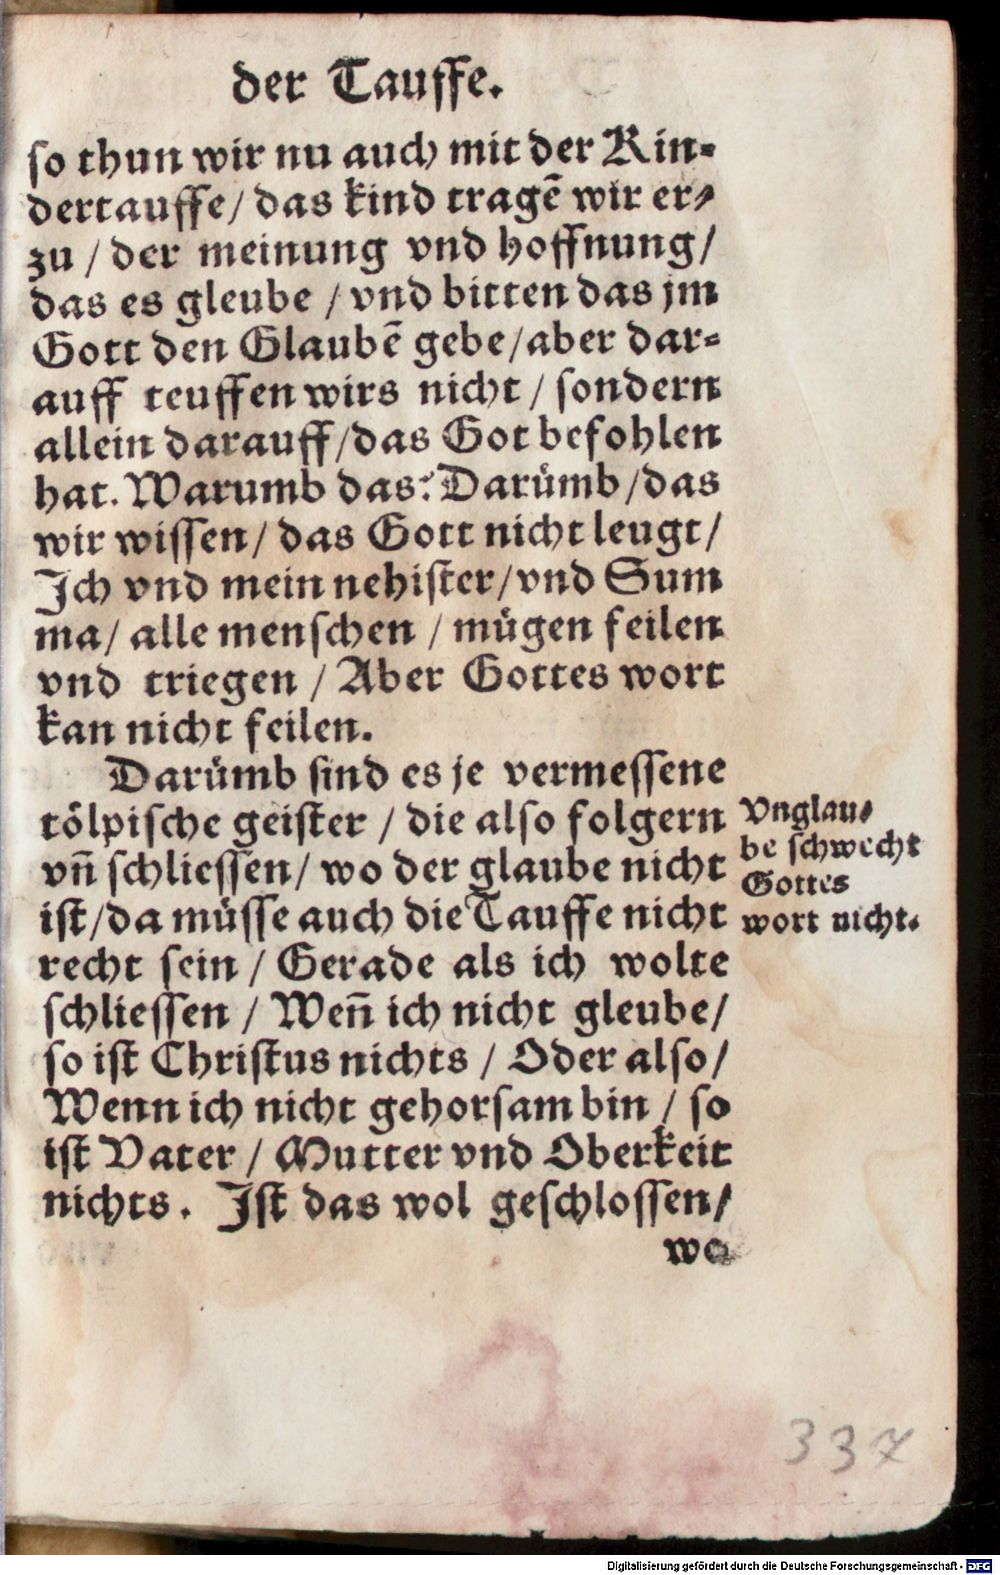 der Tauffe.
so thun wir nu auch mit der Kin-
dertauffe/ das kind tragẽ wir er-
zu / der meinung vnd hoffnung/
das es gleube / vnd bitten das jm
Gott den Glaubẽ gebe/aber dar-
auff teuffen wirs nicht / sondern
allein darauff/das Got befohlen
hat. Warumb das? Darümb/das
wir wissen/ das Gott nicht leugt/
Ich vnd mein nehister/vnd Sum
ma/ alle menschen / mügen feilen
vnd triegen / Aber Gottes wort
kan nicht feilen.
Darümb sind es je vermessene
tölpische geister / die also folgern
vñ schliessen/ wo der glaube nicht
ist/da müsse auch die Tauffe nicht
recht sein / Gerade als ich wolte
schliessen / Weñ ich nicht gleube/
so ist Christus nichts / Oder also/
Wenn ich nicht gehorsam bin / so
ist Vater / Mutter vnd Oberkeit
nichts. Ist das wol geschlossen/
wo
Vnglau-
be schwecht
Gottes
wort nicht.
337
Digitalisierung gefördert durch die Deutsche Forschungsgemeinschaft - DFG